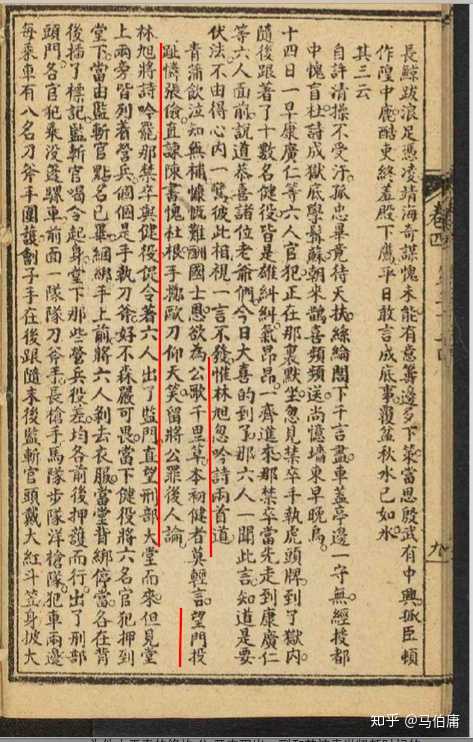 長鯨跋浪足憑凌靖海奇謀愧未能有意籌邊多下策當思殷武有中興孤臣頓
作隍中鹿酷吏終羞殿下鷹平日敢言成底事覆盆秋水已如氷
其三云
自許清操不受汙孤忠畢竟待天扶絲綸閣下千言盡車蓋亭邊一字無經授都
中愧盲杜詩成獄底學髯蘇朝來鵲喜頻頻送尚憶墻東早晚烏
十四日一早康廣仁等六人官犯正在那裏默坐忽見禁卒手執虎頭牌到了獄内
隨後跟着了十數名健役皆是雄糾糾氣昂昂一齊進來那禁卒當先走到康廣仁
等六人面前説道恭喜諸位老爺們今日大喜的到了那六人一聞此言知道是要
伏法不由得心内一驚彼此相視一言不發惟林旭忽吟詩兩首道
青蒲飲泣知無補慷慨難酬國士恩欲為公歌千里草本初健者莫輕言望門投
趾憐張儉直諫陳書愧杜根手擲歐刀仰天笑留將公罪後人論
林旭將詩吟罷那禁卒與健役促令着六人出了監門直望刑部大堂而來但見堂
上兩旁皆列着營兵個個是手執刀斧好不森嚴可畏當下健役將六名官犯押到
堂下當由監斬官點名已畢綑綁手上前將六人剥去衣服當堂背綁停當各在背
後插了標記監斬官喝令起身堂下那些營兵役差均各前後押護而行出了刑部
頭門各官犯乘没蓬騾車前面一隊隊刀斧手長槍手馬隊步隊洋槍隊犯車兩邊
每乘車有八名刀斧手圍護劊子手在後跟隨末後監斬官頭戴大紅斗笠身披大
卷四
知乎 @马伯庸